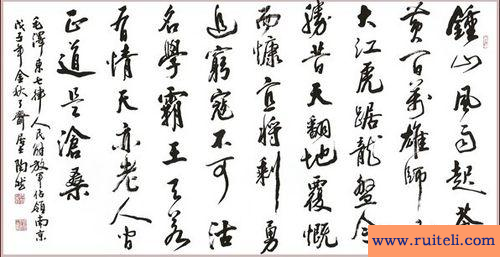 鍾山風雨起蒼
黄百萬雄師
大江虎踞龍盤今
勝昔天翻地覆慨
而慷宜將剩勇
追窮寇不可沽
名學霸王天若
有情天亦老人間
正道是滄桑
毛澤東七律人民解放軍佔領南京
戊子年金秋
www.ruiteli.com